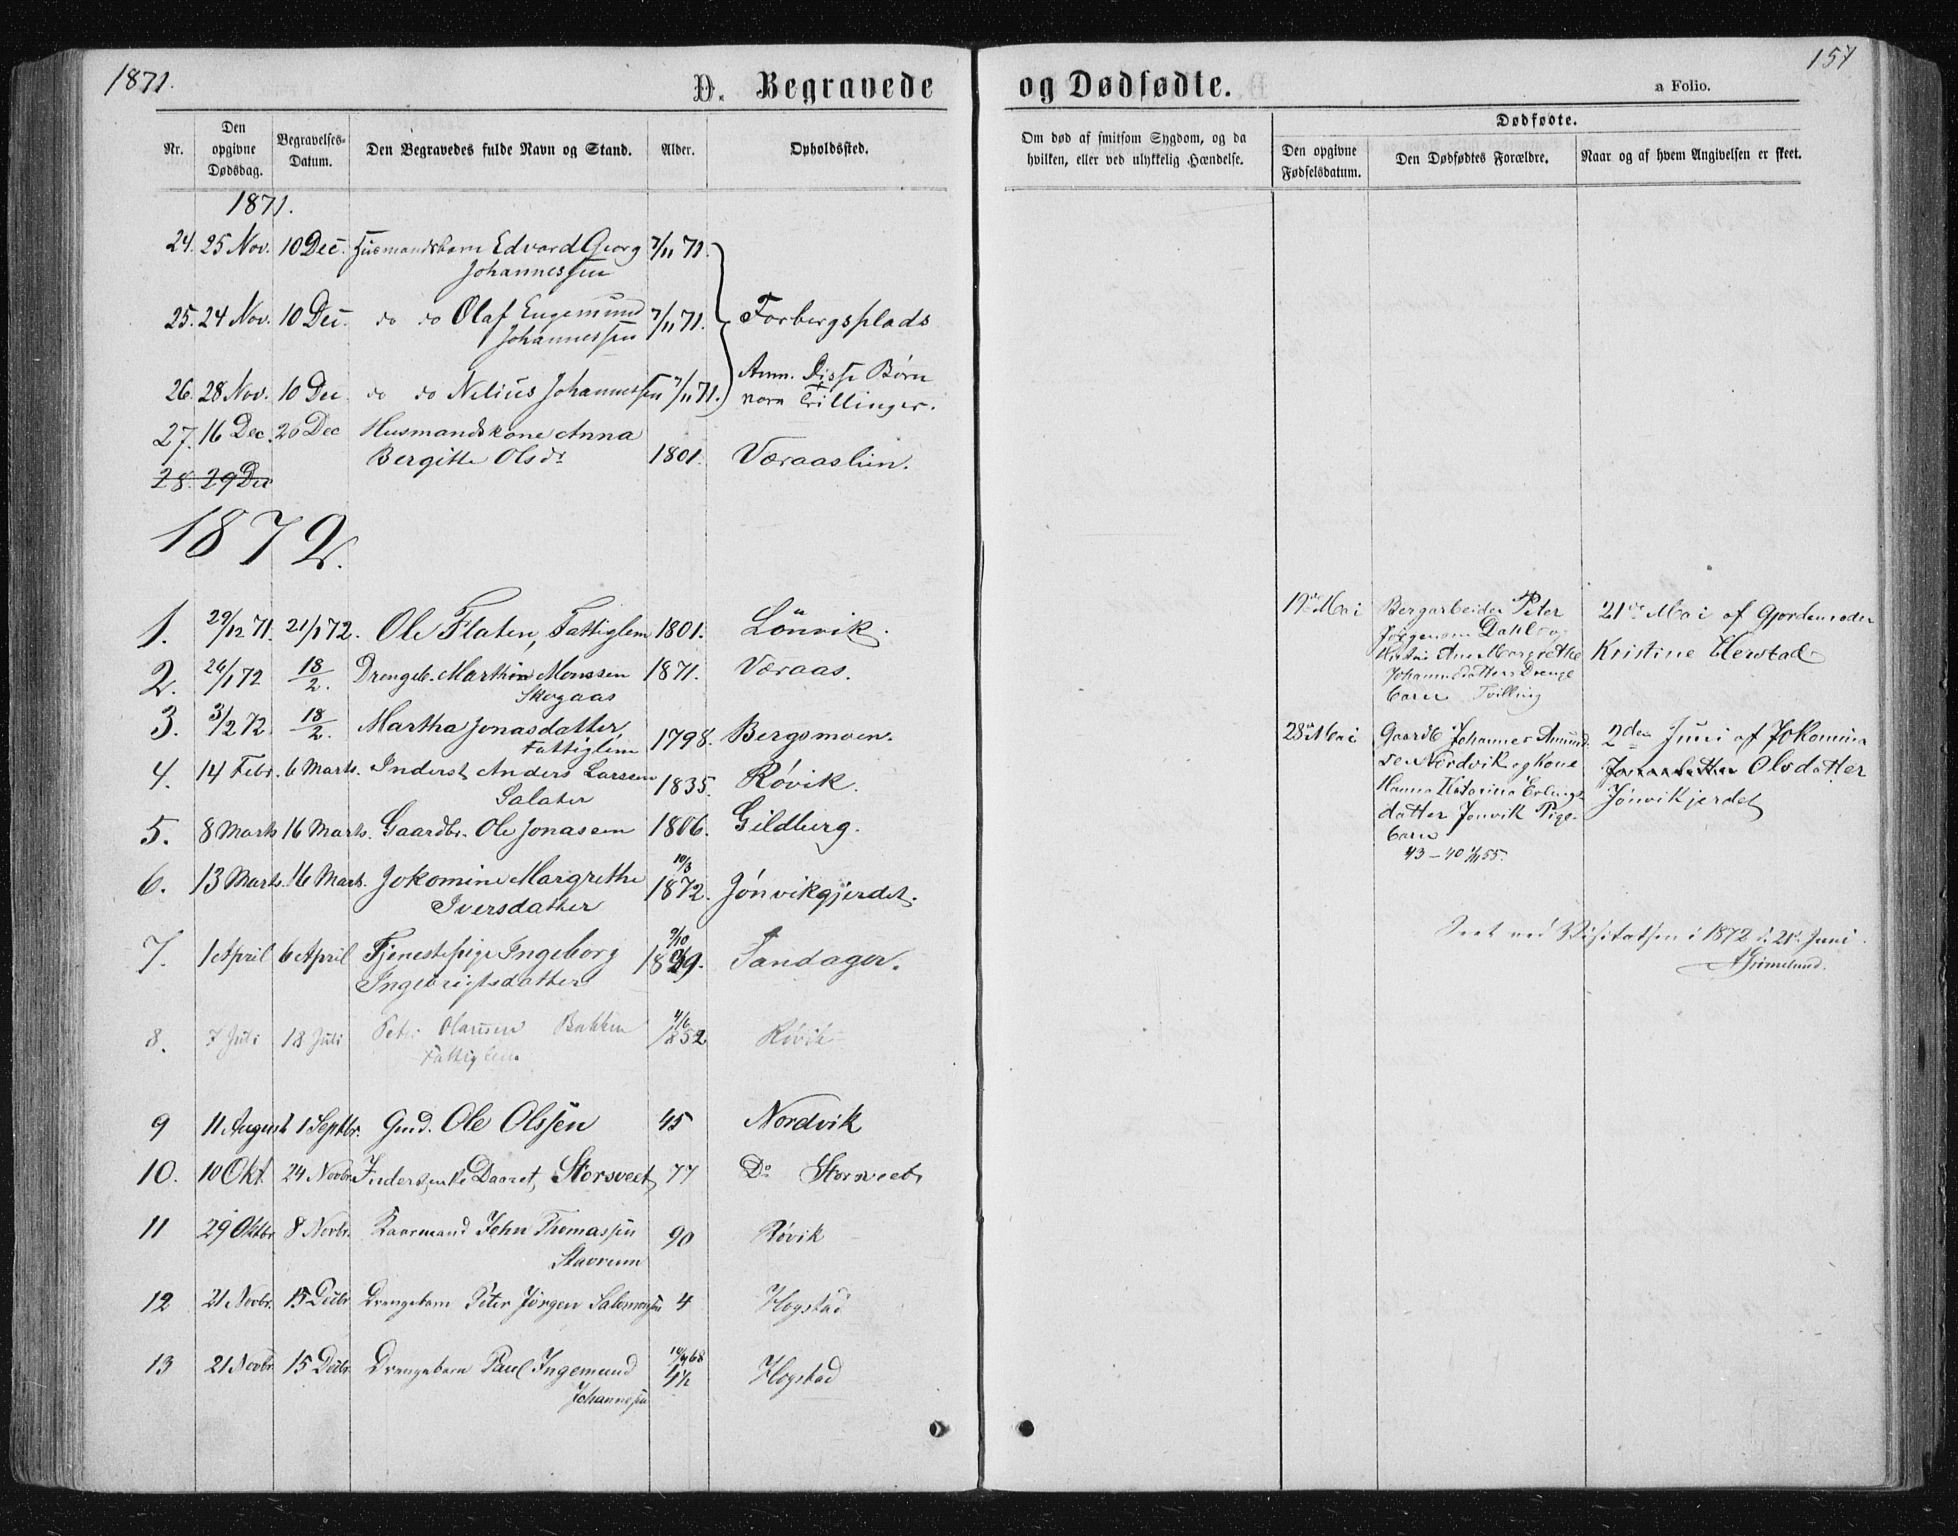 1871.
D. Begravede
Nr.
Den opgivne Dødsdag.
Begravelses-Datum.
Den Begravedes fulde Navn og Stand.
Alder.
Opholdssted.
1871.
24. 25 Nov. 10 Dec. Husmandsbarn Edvard Georg 7/11 71.
Johannessen
25. 24 Nov. 10 Dec. do do Olaf Engemund 7/11 71. Forbergsplads
Johannessen
Anm. Disse Børn
26. 28 Nov. 10 Dec do do Nelius Johannessen 7/11 71. vare Trillinger.
27. 16 Dec. 20 Dec Husmandskone Anna
Bergitte Olsdr 1801. Væraaslien.
28. 29 Dec
1872.
1. 29/12 71. 21/1 72. Ole Flaten, Fattiglem 1801. Lönvik.
2. 24/1 72 18/2. Drengeb. Marthin Monssen 1871. Væraas.
Skogaas
3. 3/2 72. 18/2. Martha Jonasdatter,
Fattiglem 1798. Bergsmoen.
4. 14 Febr. 6 Marts. Inderst Anders Larssen
Salater 1835. Røvik.
5. 8 Marts 16 Marts. Gaardbr. Ole Jonassen 1806. Gildberg.
6. 13 Marts. 16 Marts. Jokomine Margrethe 10/3 1872. Jónvikgjerdet.
Iversdatter
7. 1 April 6 April Tjenestepige Ingeborg 9/10 1829. Sandager.
Ingebrigtsdatter
8. 7 Juli 18 Juli Peter Olaussen Bakken 4/6 1852 Røvik
Fattiglem
9 11 August 1 Septbr. Gmd. Ole Olssen 45 Nordvik
10. 10 Okt. 24 Novbr. Inderstenke Daaret, Storsveet 77 Do Storsveet
11 29 Oktbr. 8 Novbr. Kaarmand John Thomassen 90 Røvik
Stavrum
12 21 Novbr. 15 Decbr. Drengebarn Peter Jörgen Salomonsen 4 Hogstad
13 21 Novbr. 15 Decbr. Drengebarn Paul Ingemund 4½ Hogstad
Johannesen
157
og Dødfødte.
a Folio.
Om død af smitsom Sygdom, og da hvilken, eller ved ulykkelig Hændelse.
Dødfødte.
Den opgivne Fødselsdatum.
Den Dødfødtes Forældre.
Naar og af hvem Angivelsen er skeet.
19de Mai Bergarbeider Peter 21de Mai af Gjordemoder
Jörgensen Dahl og
Hustru Ane Margrethe Kristine Herstad
Johannesdatters Drenge
barn Tvilling
28de Mai Gaardb. Johannes Amund- 2den Juni af Jokomina
sen Nordvik og Kone Jonasdatter Olsdatter
Hanna Katarina Erlings- Jønvikjerdet
datter Jønvik Pige-
barn
43 – 40 1/11 55.
Seet ved Visitatsen i 1872 d. 21de Juni.
A. Grimelund.